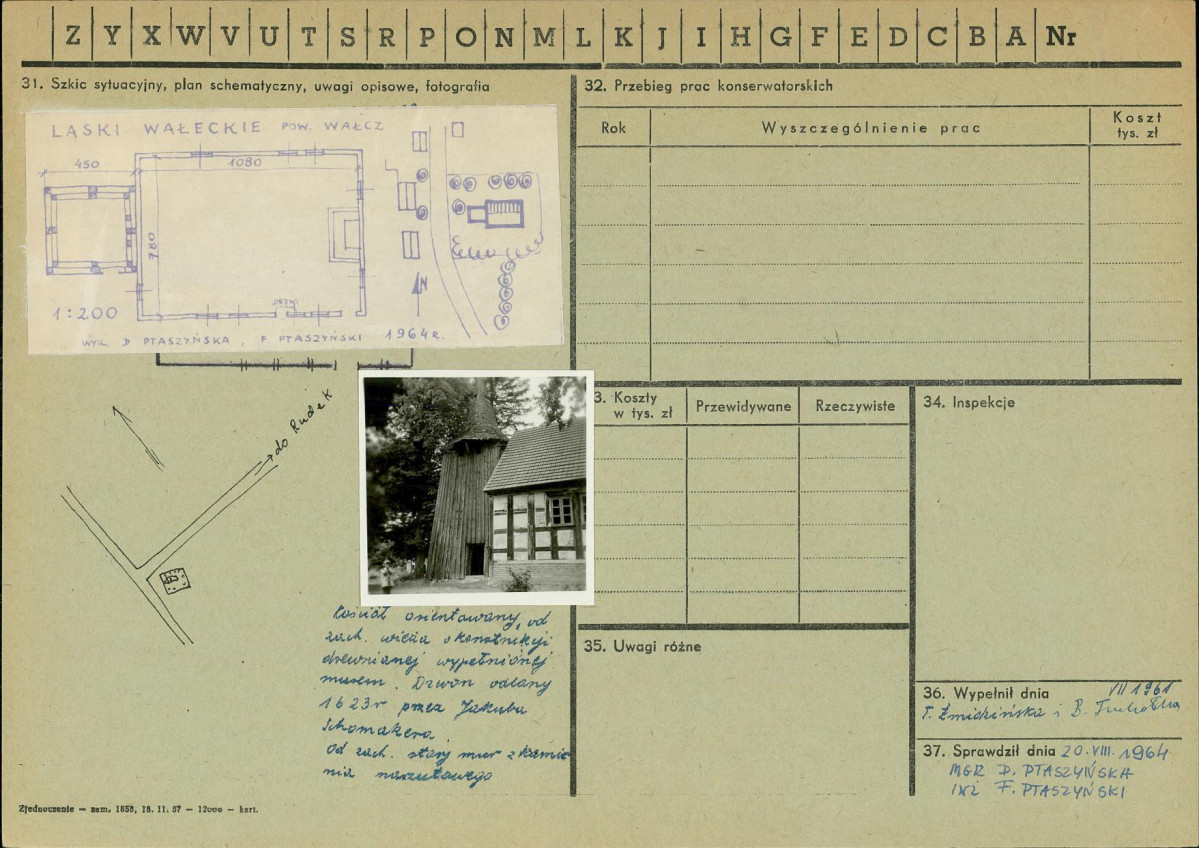 Z Y X W V U T S R P O N M L K J I H G F E D C B A Nr
31. Szkic sytuacyjny, plan schematyczny, uwagi opisowe, fotografia
LĄSKI WAŁECKIE POW. WAŁCZ
450
1080
780
DRZWI
N
1:200
WYK. D PTASZYŃSKA, F. PTASZYŃSKI 1964 r.
do Rudek
Kościół orientowany, od
zach. wieża o konstrukcji
drewnianej wypełnionej
murem. Dzwon odlany
1623 r przez Jakuba
Schomakera.
Od zach. stary mur z kamie
nia narzutowego
Zjednoczenie — zam. 1858, 18. 11. 57 — 12000 — kart.
32. Przebieg prac konserwatorskich
Rok
Wyszczególnienie prac
Koszt
tys. zł
3. Koszty
w tys. zł
Przewidywane
Rzeczywiste
34. Inspekcje
35. Uwagi różne
36. Wypełnił dnia VII 1961
T. Żmidzińska i B.
37. Sprawdził dnia 20.VIII.1964
MGR D. PTASZYŃSKA
INŻ F. PTASZYŃSKI